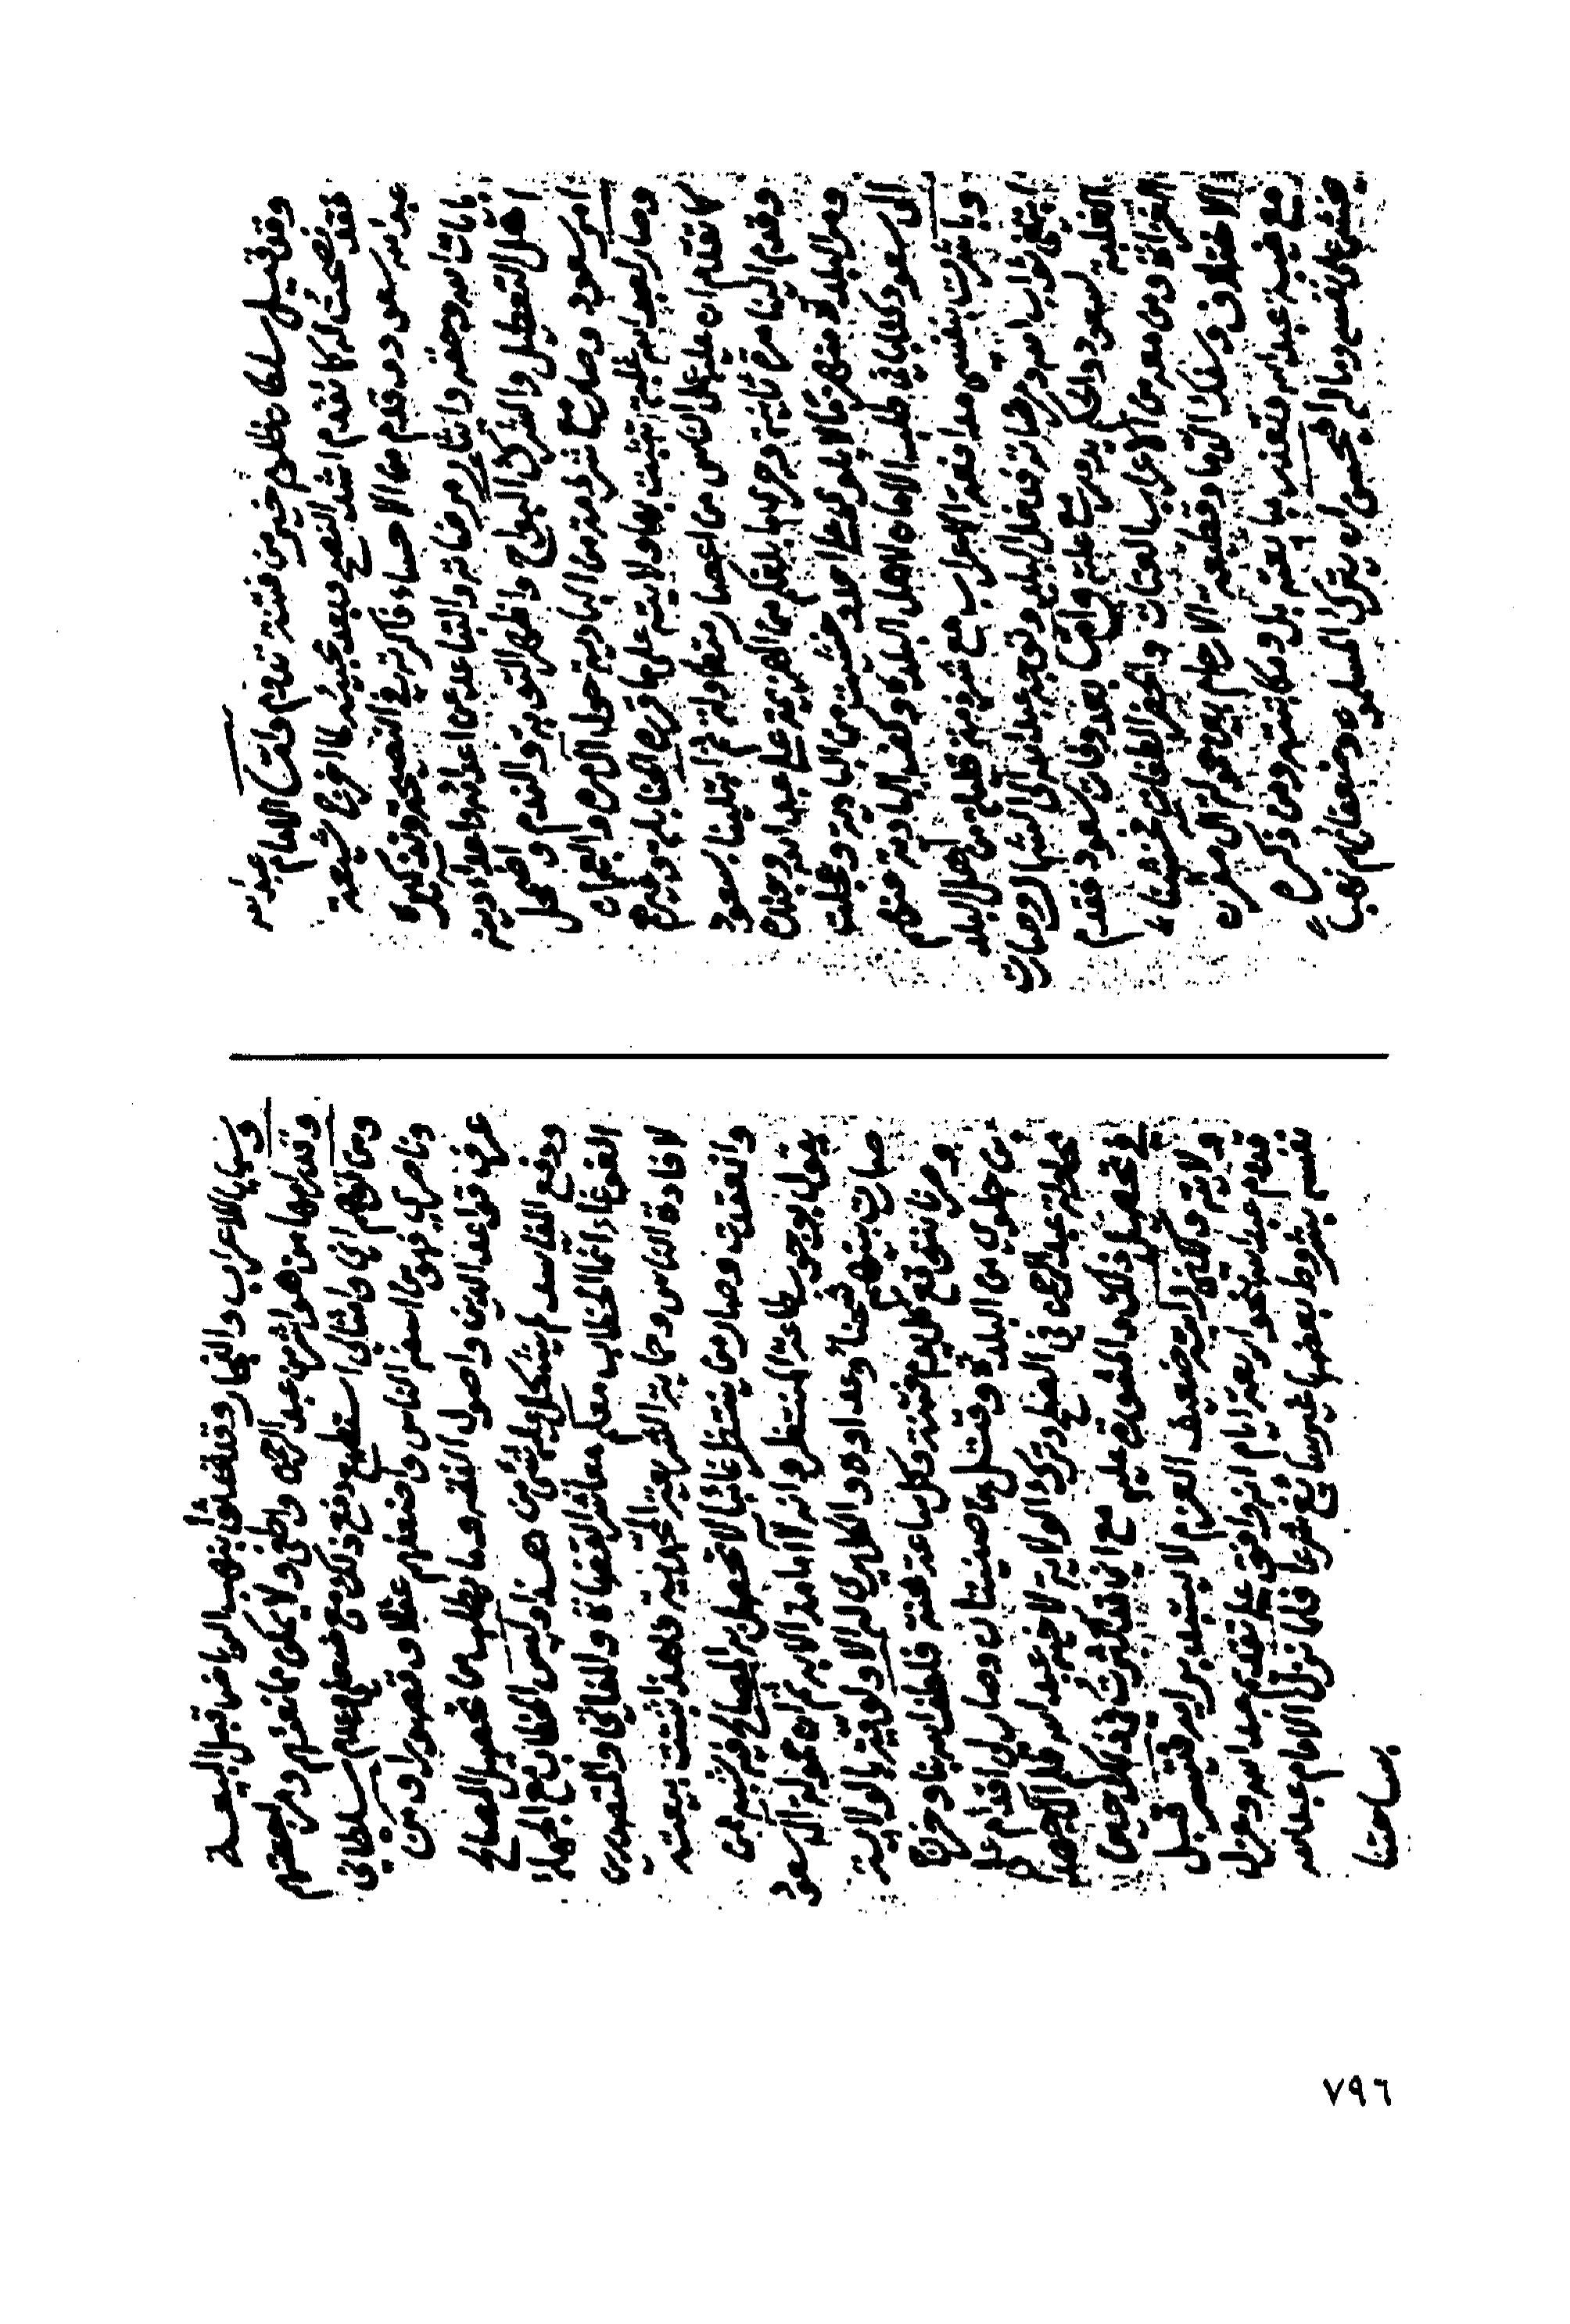 وقد قيل سلطان ظلوم خير من فتنة تدوم واما الامام عبدالله
فقد نصحت له كما تقدم اشد النصح وبعد مجيئه لما اخرج شيعة
عبدالله سعود وقدم من الاحساء ذاكرته في النصيحة وتذكيره
بايات الله وحقه وايثار مرضاته والتباعد عن اعدائه واعداء دينه
اهل التعطيل والشرك البواح واظهر التوبة والندم واضمحل
امر سعود وصار مع شرذمة من البادية حول آل مره والعجمان
وصار لعبدالله غلبة ثبتت بها ولايته على ما قرره الحنابلة وغيرهم
كما تقدم ان عليه عمل الناس من اعصار متطاولة ثم ابتلينا بسعود
وقدم الينا مرة ثانية وجرى ما بلغكم من الهزيمة على عبدالله وجنده
ومر البلدة منهزما لا يلوي على احد وخشيت من البادية وعجلت
الى سعود كتابا في طلب الامان لاهل البلدة وكف البادية عنهم
وباشرت بنفسي مدافعة الاعراب مع شرذمة قليلة من اهل البلد
ابتغي ثواب الله ومرضاته فدخل البلد وتوجه عبدالله الى الشمال وصارت
الغلبة لسعود والحكم يدور مع علته واما بعد وفات سعود فقدم
الغزاة ومن معهم من الاعراب العتات والحضر الطغات فخشينا
الاختلاف وسفك الدما وقطيعة الارحام بين حمولة آل مقرن
مع غيبة عبدالله وتعذر مبايعته بل ومكاتبته ومن ذكره
خشي على نفسه وماله افيحسن ان يترك المسلمون وضعفاؤهم نهباً
وسبيا للاعراب والفجار وقد تحدثوا بنهب الرياض قبل البيعة
وقد رامها من هو اشر من عبدالرحمن واطغى ولا يمكن ممانعتهم ومراجعتهم
ومن توهم اني وامثالي استطيع دفع ذلك مع ضعفي وعدم سلطاني
وناصري فهو من اسفه الناس واضعفهم عقلا وتصورا ومن
عرف قواعد الدين واصول الفقه وما يطلب من تحصيل المصالح
ودفع المفاسد لم يشكل عليه شئ من هذا وليس الخطاب مع الجهلة
الغوغاء انما الخطاب معكم معاشر القضاة والمفاتي والمتصدرين
لافادة الناس وحماية الشريعة المحمدية وبهذا ثبتت بيعته
وانعقدت وصار من ينتظر غائبا لا تحصل به المصالح فيه شبه ممن
يقول بوجوب طاعة المنتظر وانه لا امامة الا به ثم ان حمولة آل سعود
صارت بينهم شحنا وعداوه والكل يرى له الاولوية بالولاية
وصرنا نتوقع كل يوم فتنة وكل ساعة محنة فلطف الله بنا وخرج
ابن جلوي من البلدة وقتل ابن صنيتان وصار لي اقدام على
محاولة عبدالرحمن في الصلح وترك الولاية لاخيه عبدالله فلم آل جهدا
في تحصيل ذلك والمشورة عليه مع اني قد اكثرت في ذلك حين
ولايته ولكن رايته ضعيف العزم لا يستبد برايه فيسر الله قبل
قدوم عبدالله بنحو اربعة ايام انه وافق على تقديم عبدالله وعزل
نفسه بشروط بعضها غير سايغ شرعا فلما نزل الامام عبدالله
بساحتنا
٧٩٦